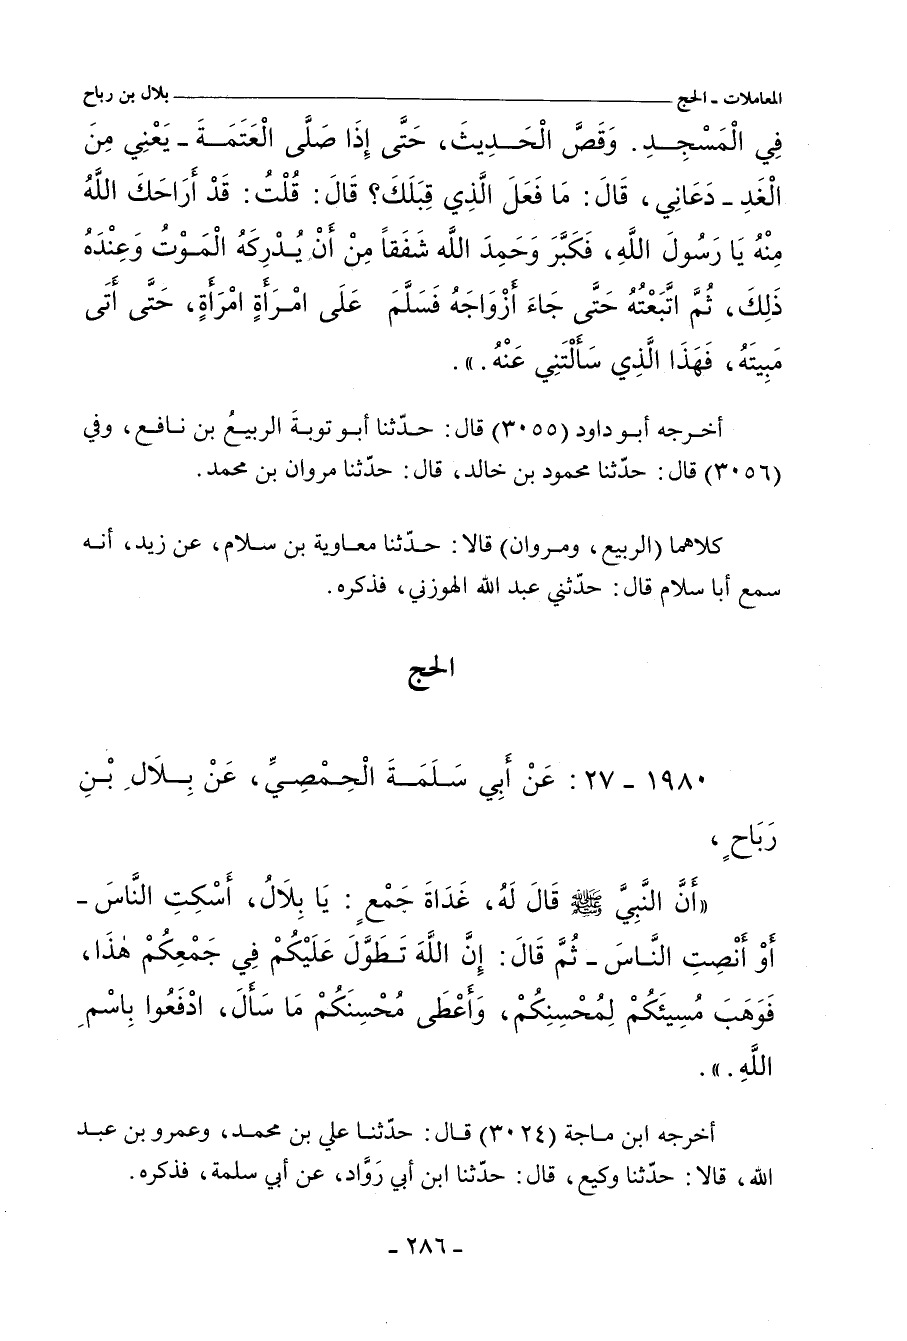 المعاملات ـ الحج ــــــــــــــــــــ بلال بن رباح
فِي الْمَسْجِدِ. وَقَصَّ الْحَدِيثَ، حَتَّى إِذَا صَلَّى الْعَتَمَةَ ـ يَعْنِي مِنَ
الْغَدِ ـ دَعَانِي، قَالَ: مَا فَعَلَ الَّذِي قِبَلَكَ؟ قَالَ: قُلْتُ: قَدْ أَرَاحَكَ اللَّهُ
مِنْهُ يَا رَسُولَ اللَّهِ، فَكَبَّرَ وَحَمِدَ اللَّه شَفَقاً مِنْ أَنْ يُدْرِكَهُ الْمَوْتُ وَعِنْدَهُ
ذَلِكَ، ثُمَّ اتَّبَعْتُهُ حَتَّى جَاءَ أَزْوَاجَهُ فَسَلَّمَ عَلَى امْرَأَةٍ امْرَأَةٍ، حَتَّى أَتَى
مَبِيتَهُ، فَهَذَا الَّذِي سَأَلْتَنِي عَنْهُ.».
أخرجه أبو داود (٣٠٥٥) قال: حدّثنا أبو توبةَ الربيعُ بن نافع، وفي
(٣٠٥٦) قال: حدّثنا محمود بن خالد، قال: حدّثنا مروان بن محمد.
كلاهما (الربيع، ومروان) قالا: حدّثنا معاوية بن سلام، عن زيد، أنه
سمع أبا سلام قال: حدّثني عبد الله الهوزني، فذكره.
الحج
١٩٨٠ ـ ٢٧: عَنْ أَبِي سَلَمَةَ الْحِمْصِيِّ، عَنْ بِلَالِ بْنِ
رَبَاحٍ،
«أَنَّ النَّبِيَّ ﷺ قَالَ لَهُ، غَدَاةَ جَمْعٍ: يَا بِلَالُ، أَسْكِتِ النَّاسَ ـ
أَوْ أَنْصِتِ النَّاسَ ـ ثُمَّ قَالَ: إِنَّ اللَّهَ تَطَوَّلَ عَلَيْكُمْ فِي جَمْعِكُمْ هٰذَا،
فَوَهَبَ مُسِيئَكُمْ لِمُحْسِنِكُمْ، وَأَعْطَى مُحْسِنَكُمْ مَا سَأَلَ، ادْفَعُوا بِاسْمِ
اللَّهِ.».
أخرجه ابن ماجة (٣٠٢٤) قال: حدّثنا علي بن محمد، وعمرو بن عبد
الله، قالا: حدّثنا وكيع، قال: حدّثنا ابن أبي رَوَّاد، عن أبي سلمة، فذكره.
ـ ٢٨٦ ـ